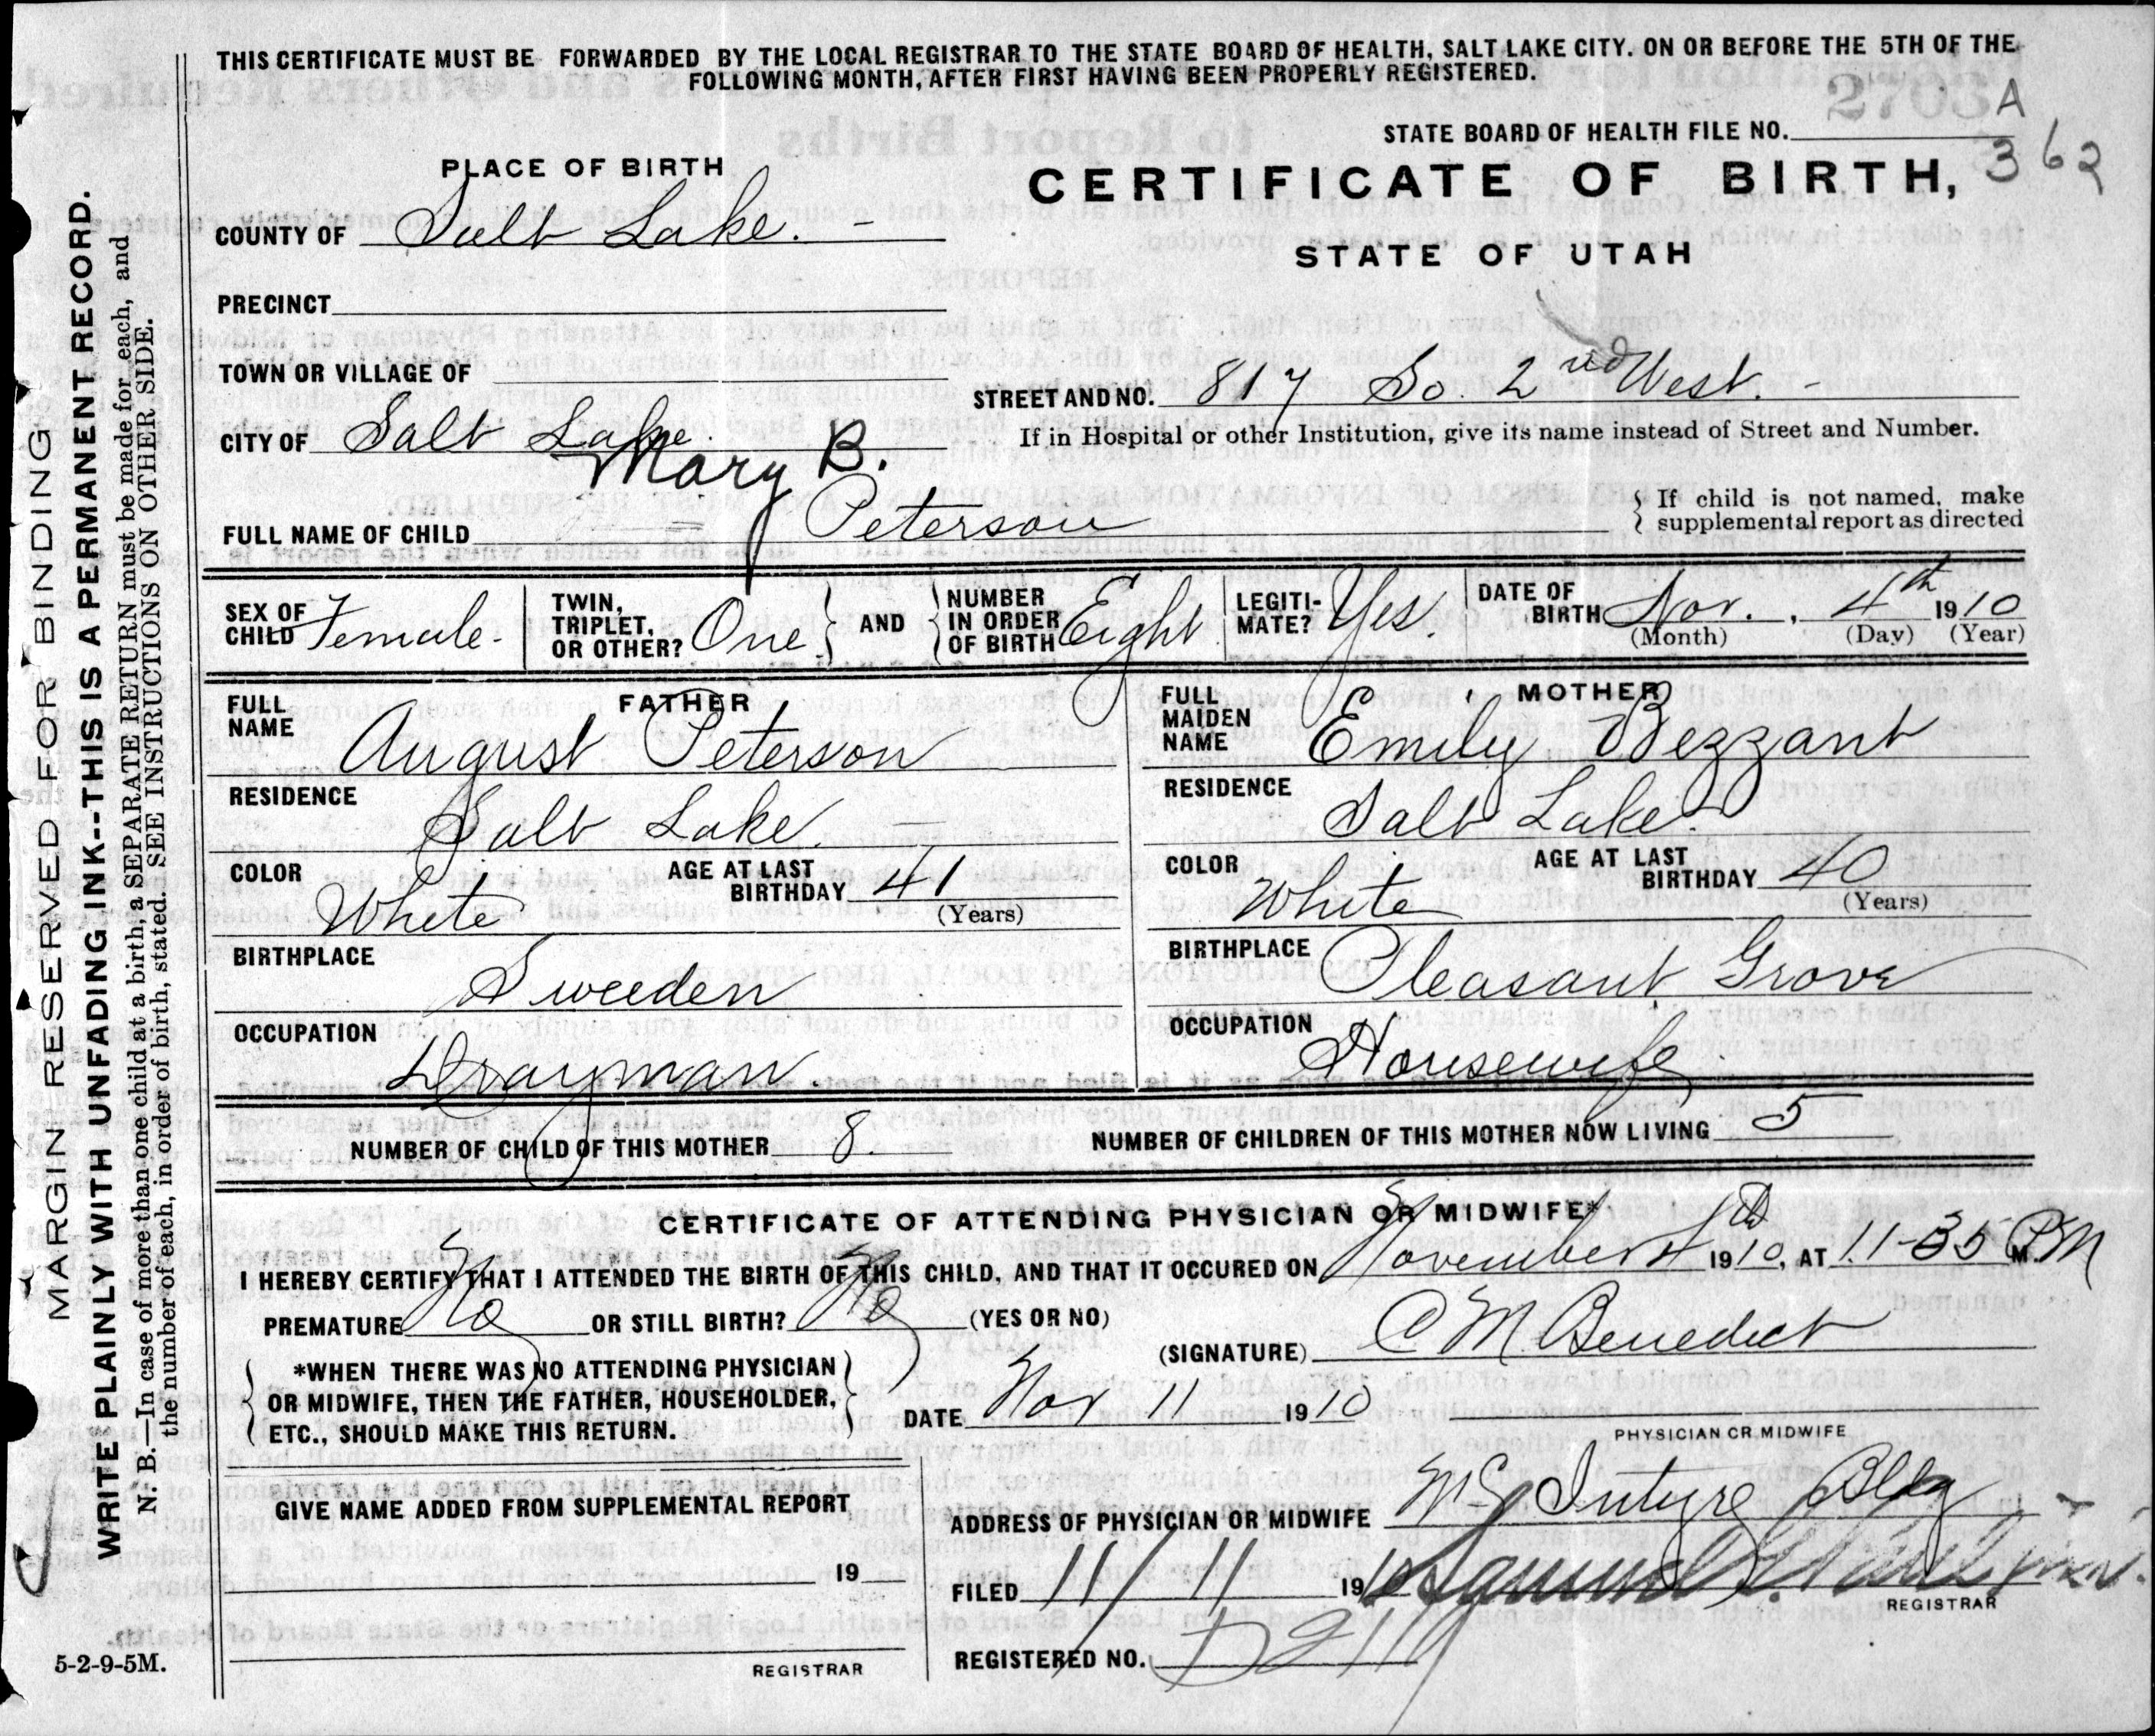 THIS CERTIFICATE MUST BE FORWARDED BY THE LOCAL REGISTRAR TO THE STATE BOARD OF HEALTH, SALT LAKE CITY. ON OR BEFORE THE 5TH OF THE
FOLLOWING MONTH, AFTER FIRST HAVING BEEN PROPERLY REGISTERED.
2703 A
STATE BOARD OF HEALTH FILE NO.
362
PLACE OF BIRTH
CERTIFICATE OF BIRTH,
STATE OF UTAH
COUNTY OF Salt Lake. -
PRECINCT
TOWN OR VILLAGE OF
STREET AND NO. 817 So. 2nd West. -
CITY OF Salt Lake.
If in Hospital or other Institution, give its name instead of Street and Number.
Mary B.
FULL NAME OF CHILD Peterson
If child is not named, make
supplemental report as directed
SEX OF CHILD Female.
TWIN, TRIPLET, OR OTHER? One
AND
NUMBER IN ORDER OF BIRTH Eight
LEGITIMATE? Yes.
DATE OF BIRTH Nor., 4th 1910
(Month) (Day) (Year)
FATHER
FULL NAME August Peterson
RESIDENCE Salt Lake. -
COLOR White
AGE AT LAST BIRTHDAY 41
(Years)
BIRTHPLACE Sweeden
OCCUPATION Drayman
MOTHER
FULL MAIDEN NAME Emily Bezzant
RESIDENCE Salt Lake.
COLOR White
AGE AT LAST BIRTHDAY 40
(Years)
BIRTHPLACE Pleasant Grove
OCCUPATION Housewife
NUMBER OF CHILD OF THIS MOTHER 8.
NUMBER OF CHILDREN OF THIS MOTHER NOW LIVING 5
CERTIFICATE OF ATTENDING PHYSICIAN OR MIDWIFE*
I HEREBY CERTIFY THAT I ATTENDED THE BIRTH OF THIS CHILD, AND THAT IT OCCURED ON November 4th 1910, AT 11-35 P.M.
PREMATURE No OR STILL BIRTH? No (YES OR NO)
(SIGNATURE) C M Benedict
*WHEN THERE WAS NO ATTENDING PHYSICIAN
OR MIDWIFE, THEN THE FATHER, HOUSEHOLDER,
ETC., SHOULD MAKE THIS RETURN.
DATE Nov 11 1910
PHYSICIAN OR MIDWIFE
GIVE NAME ADDED FROM SUPPLEMENTAL REPORT
19
REGISTRAR
ADDRESS OF PHYSICIAN OR MIDWIFE McIntyre Bldg
FILED 11/11 1910
REGISTRAR
REGISTERED NO.
5-2-9-5M.
MARGIN RESERVED FOR BINDING
WRITE PLAINLY WITH UNFADING INK--THIS IS A PERMANENT RECORD.
N. B.—In case of more than one child at a birth, a SEPARATE RETURN must be made for each, and
the number of each, in order of birth, stated. SEE INSTRUCTIONS ON OTHER SIDE.